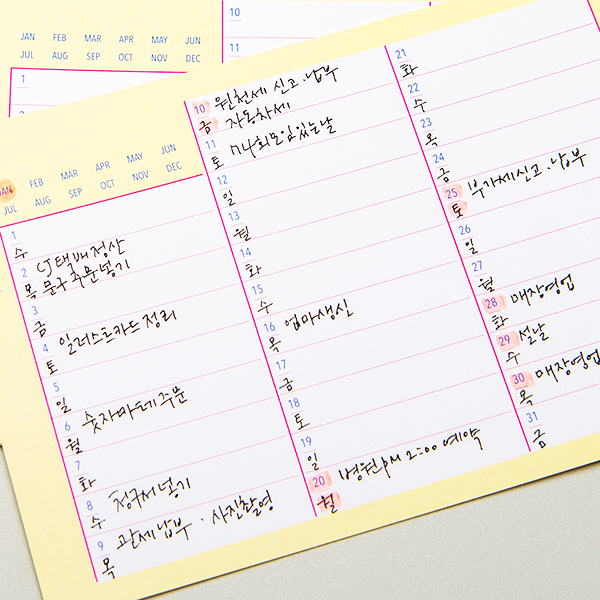 10
11
JAN FEB MAR APR MAY JUN
JUL AUG SEP OCT NOV DEC
1
JAN FEB MAR APR MAY JUN
JUL AUG SEP OCT NOV DEC
1
수
2 CJ택배정산
목 문구주문넣기
3
금
4 일러스트카드정리
토
5
일
6 숫자마테주문
월
7
화
8 청구서넣기
수
9 관세납부 · 사진촬영
목
10 원천세 신고.납부
금 자동차세
11 774회모임있는날
토
12
일
13
월
14
화
15
수
16 엄마생신
목
17
금
18
토
19
일
20 병원PM 2:00 예약
월
21
화
22
수
23
목
24
금
25 부가세신고.납부
토
26
일
27
월
28 매장영업
화
29 설날
수
30 매장영업
목
31
금